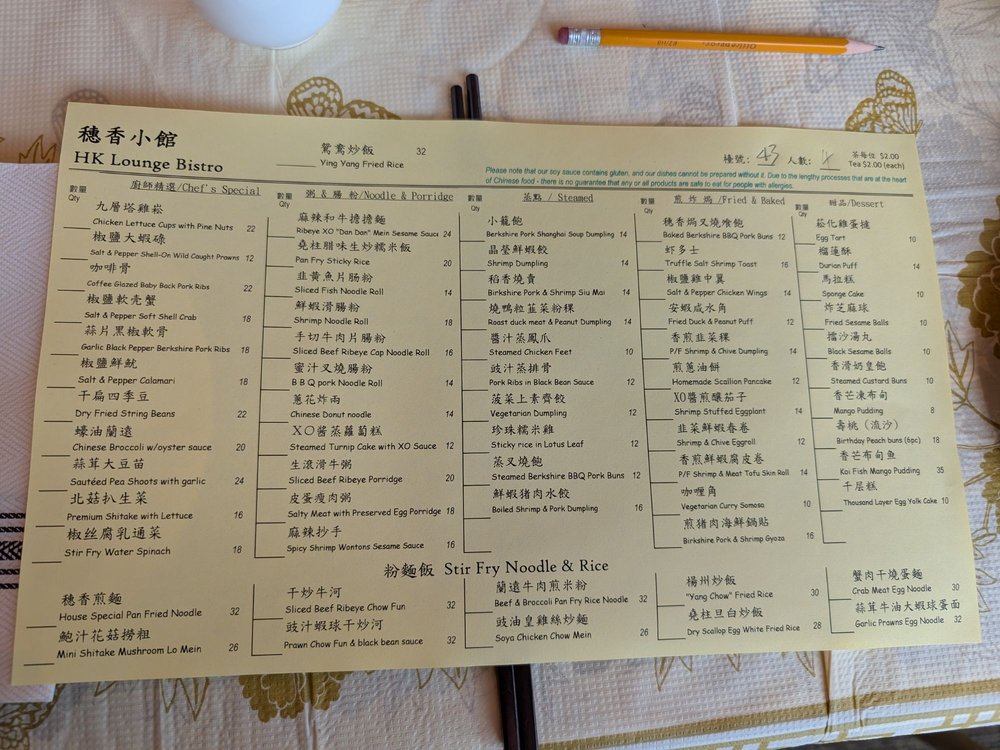 穗香小館
HK Lounge Bistro
鴛鴦炒飯 32
Ying Yang Fried Rice
檯號: 43 人數: 4
茶每位 $2.00
Tea $2.00 (each)
Please note that our soy sauce contains gluten, and our dishes cannot be prepared without it. Due to the lengthy processes that are at the heart
of Chinese food - there is no guarantee that any or all products are safe to eat for people with allergies.
數量
Qty
廚師精選/Chef's Special
九層塔雞崧
Chicken Lettuce Cups with Pine Nuts 22
椒鹽大蝦碌
Salt & Pepper Shell-On Wild Caught Prawns 12
咖啡骨
Coffee Glazed Baby Back Pork Ribs 22
椒鹽軟壳蟹
Salt & Pepper Soft Shell Crab 18
蒜片黑椒軟骨
Garlic Black Pepper Berkshire Pork Ribs 18
椒鹽鮮魷
Salt & Pepper Calamari 18
干扁四季豆
Dry Fried String Beans 22
蠔油蘭遠
Chinese Broccoli w/oyster sauce 20
蒜茸大豆苗
Sautéed Pea Shoots with garlic 24
北菇扒生菜
Premium Shitake with Lettuce 16
椒丝腐乳通菜
Stir Fry Water Spinach 18
數量
Qty
粥 & 腸 粉/Noodle & Porridge
麻辣和牛擔擔麵
Ribeye XO "Dan Dan" Mein Sesame Sauce 24
堯柱腊味生炒糯米飯
Pan Fry Sticky Rice 20
韭黃魚片肠粉
Sliced Fish Noodle Roll 14
鮮蝦滑腸粉
Shrimp Noodle Roll 18
手切牛肉片腸粉
Sliced Beef Ribeye Cap Noodle Roll 16
蜜汁叉燒腸粉
B B Q pork Noodle Roll 14
蔥花炸兩
Chinese Donut noodle 14
XO醬蒸蘿蔔糕
Steamed Turnip Cake with XO Sauce 12
生滾滑牛粥
Sliced Beef Ribeye Porridge 20
皮蛋瘦肉粥
Salty Meat with Preserved Egg Porridge 18
麻辣抄手
Spicy Shrimp Wontons Sesame Sauce 16
數量
Qty
蒸點 / Steamed
小籠飽
Berkshire Pork Shanghai Soup Dumpling 14
晶瑩鮮蝦餃
Shrimp Dumpling 14
稻香燒賣
Birkshire Pork & Shrimp Siu Mai 14
燒鴨粒韮菜粉粿
Roast duck meat & Peanut Dumpling 14
醬汁蒸鳳爪
Steamed Chicken Feet 10
豉汁蒸排骨
Pork Ribs in Black Bean Sauce 12
菠菜上素齊餃
Vegetarian Dumpling 12
珍珠糯米雞
Sticky rice in Lotus Leaf 12
蒸叉燒飽
Steamed Berkshire BBQ Pork Buns 12
鮮蝦猪肉水餃
Boiled Shrimp & Pork Dumpling 16
數量
Qty
煎 炸 焗 /Fried & Baked
穗香焗叉燒飡飽
Baked Berkshire BBQ Pork Buns 12
虾多士
Truffle Salt Shrimp Toast 16
椒鹽雞中翼
Salt & Pepper Chicken Wings 14
安蝦咸水角
Fried Duck & Peanut Puff 12
香煎韮菜粿
P/F Shrimp & Chive Dumpling 14
煎蔥油餅
Homemade Scallion Pancake 12
XO醬煎釀茄子
Shrimp Stuffed Eggplant 14
韭菜鮮蝦春卷
Shrimp & Chive Eggroll 12
香煎鮮蝦腐皮卷
P/F Shrimp & Meat Tofu Skin Roll 14
咖喱角
Vegetarian Curry Somosa 10
煎猪肉海鮮鍋貼
Birkshire Pork & Shrimp Gyoza 16
數量
Qty
甜品/Dessert
崧化雞蛋撻
Egg Tart 10
榴蓮酥
Durian Puff 14
馬拉糕
Sponge Cake 10
炸芝麻球
Fried Sesame Balls 10
擂沙湯丸
Black Sesame Balls 10
香滑奶皇飽
Steamed Custard Buns 10
香芒凍布甸
Mango Pudding 8
壽桃（流沙）
Birthday Peach buns (6pc) 18
香芒布甸魚
Koi Fish Mango Pudding 35
千层糕
Thousand Layer Egg Yolk Cake 10
粉麵飯 Stir Fry Noodle & Rice
穗香煎麵
House Special Pan Fried Noodle 32
鮑汁花菇撈粗
Mini Shitake Mushroom Lo Mein 26
干炒牛河
Sliced Beef Ribeye Chow Fun 32
豉汁蝦球干炒河
Prawn Chow Fun & black bean sauce 32
蘭遠牛肉煎米粉
Beef & Broccoli Pan Fry Rice Noodle 32
豉油皇雞絲炒麵
Soya Chicken Chow Mein 26
楊州炒飯
"Yang Chow" Fried Rice 30
堯柱旦白炒飯
Dry Scallop Egg White Fried Rice 28
蟹肉干燒蛋麵
Crab Meat Egg Noodle 30
蒜茸牛油大蝦球蛋面
Garlic Prawns Egg Noodle 32